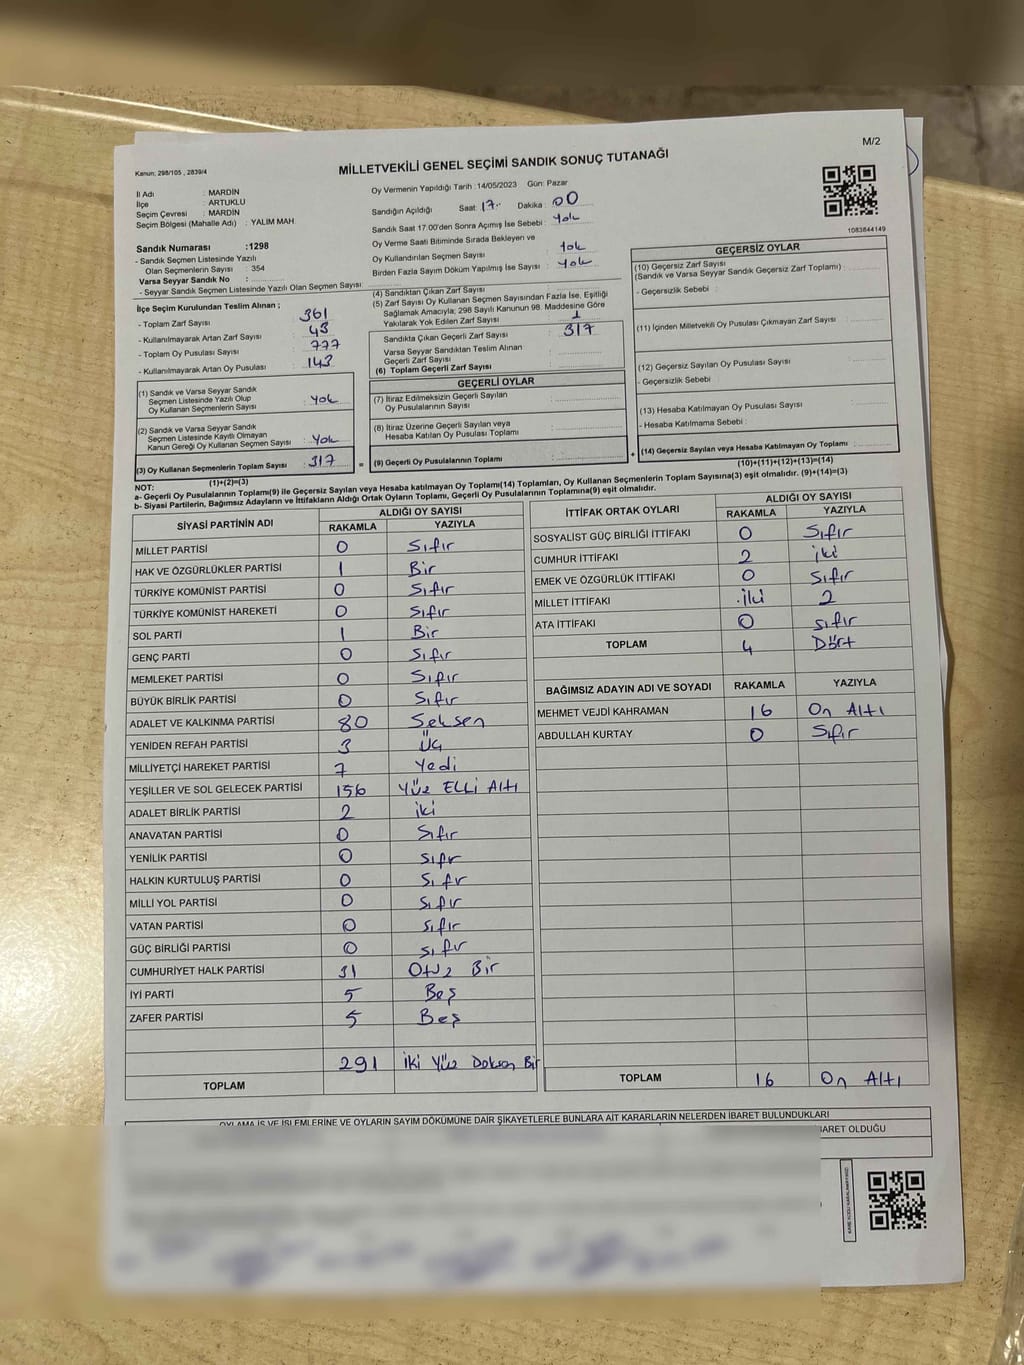 M/2
Kanun: 298/105 , 2839/4
MİLLETVEKİLİ GENEL SEÇİMİ SANDIK SONUÇ TUTANAĞI
İl Adı : MARDİN
İlçe : ARTUKLU
Seçim Çevresi : MARDİN
Seçim Bölgesi (Mahalle Adı) : YALIM MAH.
Sandık Numarası :1298
- Sandık Seçmen Listesinde Yazılı
Olan Seçmenlerin Sayısı : 354
Varsa Seyyar Sandık No :
- Seyyar Sandık Seçmen Listesinde Yazılı Olan Seçmen Sayısı :
Oy Vermenin Yapıldığı Tarih :14/05/2023 Gün: Pazar
Sandığın Açıldığı Saat: 17 Dakika : 00
Sandık Saat 17.00'den Sonra Açımış İse Sebebi : Yok
Oy Verme Saati Bitiminde Sırada Bekleyen ve
Oy Kullandırılan Seçmen Sayısı : Yok
Birden Fazla Sayım Döküm Yapılmış İse Sayısı : Yok
1083844149
İlçe Seçim Kurulundan Teslim Alınan ;
- Toplam Zarf Sayısı : 361
- Kullanılmayarak Artan Zarf Sayısı : 43
- Toplam Oy Pusulası Sayısı : 777
- Kullanılmayarak Artan Oy Pusulası : 143
(1) Sandık ve Varsa Seyyar Sandık
Seçmen Listesinde Yazılı Olup
Oy Kullanan Seçmenlerin Sayısı : Yok
(2) Sandık ve Varsa Seyyar Sandık
Seçmen Listesinde Kayıtlı Olmayan
Kanun Gereği Oy Kullanan Seçmen Sayısı : Yok
(3) Oy Kullanan Seçmenlerin Toplam Sayısı : 317
(1)+(2)=(3)
(4) Sandıktan Çıkan Zarf Sayısı :
(5) Zarf Sayısı Oy Kullanan Seçmen Sayısından Fazla İse, Eşitliği
Sağlamak Amacıyla; 298 Sayılı Kanunun 98. Maddesine Göre
Yakılarak Yok Edilen Zarf Sayısı : 1
Sandıkta Çıkan Geçerli Zarf Sayısı : 317
Varsa Seyyar Sandıktan Teslim Alınan
Geçerli Zarf Sayısı :
(6) Toplam Geçerli Zarf Sayısı :
GEÇERLİ OYLAR
(7) İtiraz Edilmeksizin Geçerli Sayılan
Oy Pusulalarının Sayısı :
(8) İtiraz Üzerine Geçerli Sayılan veya
Hesaba Katılan Oy Pusulası Toplamı :
= (9) Geçerli Oy Pusulalarının Toplamı :
GEÇERSİZ OYLAR
(10) Geçersiz Zarf Sayısı
(Sandık ve Varsa Seyyar Sandık Geçersiz Zarf Toplamı) :
- Geçersizlik Sebebi :
(11) İçinden Milletvekili Oy Pusulası Çıkmayan Zarf Sayısı :
(12) Geçersiz Sayılan Oy Pusulası Sayısı :
- Geçersizlik Sebebi :
(13) Hesaba Katılmayan Oy Pusulası Sayısı :
- Hesaba Katılmama Sebebi :
+ (14) Geçersiz Sayılan veya Hesaba Katılmayan Oy Toplamı :
(10)+(11)+(12)+(13)=(14)
NOT:
a- Geçerli Oy Pusulalarının Toplamı(9) ile Geçersiz Sayılan veya Hesaba katılmayan Oy Toplamı(14) Toplamları, Oy Kullanan Seçmenlerin Toplam Sayısına(3) eşit olmalıdır. (9)+(14)=(3)
b- Siyasi Partilerin, Bağımsız Adayların ve İttifakların Aldığı Ortak Oyların Toplamı, Geçerli Oy Pusulalarının Toplamına(9) eşit olmalıdır.
SİYASİ PARTİNİN ADI ALDIĞI OY SAYISI
RAKAMLA YAZIYLA
MİLLET PARTİSİ 0 Sıfır
HAK VE ÖZGÜRLÜKLER PARTİSİ 1 Bir
TÜRKİYE KOMÜNİST PARTİSİ 0 Sıfır
TÜRKİYE KOMÜNİST HAREKETİ 0 Sıfır
SOL PARTİ 1 Bir
GENÇ PARTİ 0 Sıfır
MEMLEKET PARTİSİ 0 Sıfır
BÜYÜK BİRLİK PARTİSİ 0 Sıfır
ADALET VE KALKINMA PARTİSİ 80 Seksen
YENİDEN REFAH PARTİSİ 3 Üç
MİLLİYETÇİ HAREKET PARTİSİ 7 Yedi
YEŞİLLER VE SOL GELECEK PARTİSİ 156 Yüz ELLi Altı
ADALET BİRLİK PARTİSİ 2 iki
ANAVATAN PARTİSİ 0 Sıfır
YENİLİK PARTİSİ 0 Sıfır
HALKIN KURTULUŞ PARTİSİ 0 Sıfır
MİLLİ YOL PARTİSİ 0 Sıfır
VATAN PARTİSİ 0 Sıfır
GÜÇ BİRLİĞİ PARTİSİ 0 Sıfır
CUMHURİYET HALK PARTİSİ 31 Otuz Bir
İYİ PARTİ 5 Beş
ZAFER PARTİSİ 5 Beş
291 iki Yüz Doksan Bir
TOPLAM
İTTİFAK ORTAK OYLARI ALDIĞI OY SAYISI
RAKAMLA YAZIYLA
SOSYALİST GÜÇ BİRLİĞİ İTTİFAKI 0 Sıfır
CUMHUR İTTİFAKI 2 iki
EMEK VE ÖZGÜRLÜK İTTİFAKI 0 Sıfır
MİLLET İTTİFAKI iki 2
ATA İTTİFAKI 0 sıfır
TOPLAM 4 Dört
BAĞIMSIZ ADAYIN ADI VE SOYADI RAKAMLA YAZIYLA
MEHMET VEJDİ KAHRAMAN 16 On Altı
ABDULLAH KURTAY 0 Sıfır
TOPLAM 16 On Altı
OYLAMA İŞ VE İŞLEMLERİNE VE OYLARIN SAYIM DÖKÜMÜNE DAİR ŞİKAYETLERLE BUNLARA AİT KARARLARIN NELERDEN İBARET BULUNDUKLARI
İBARET OLDUĞU